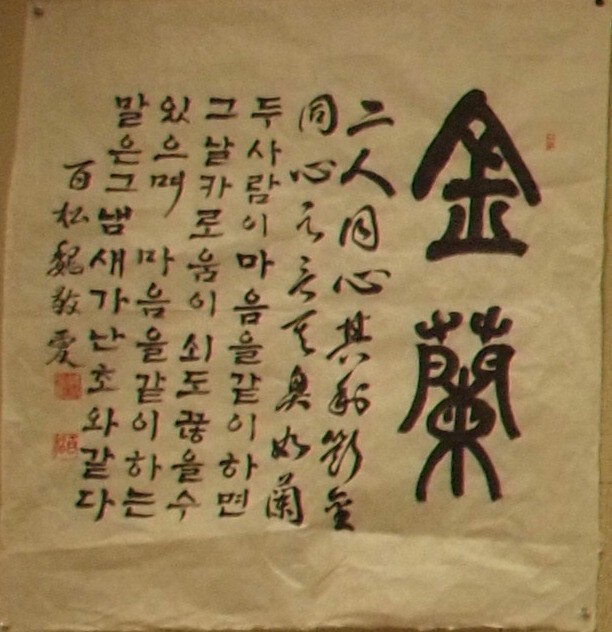 金蘭
二人同心其利斷金
同心之言其臭如蘭
두사람이마음을같이하면
그날카로움이쇠도끊을수
있으며 마음을같이하는
말은그냄새가난초와같다
百松魏敬愛